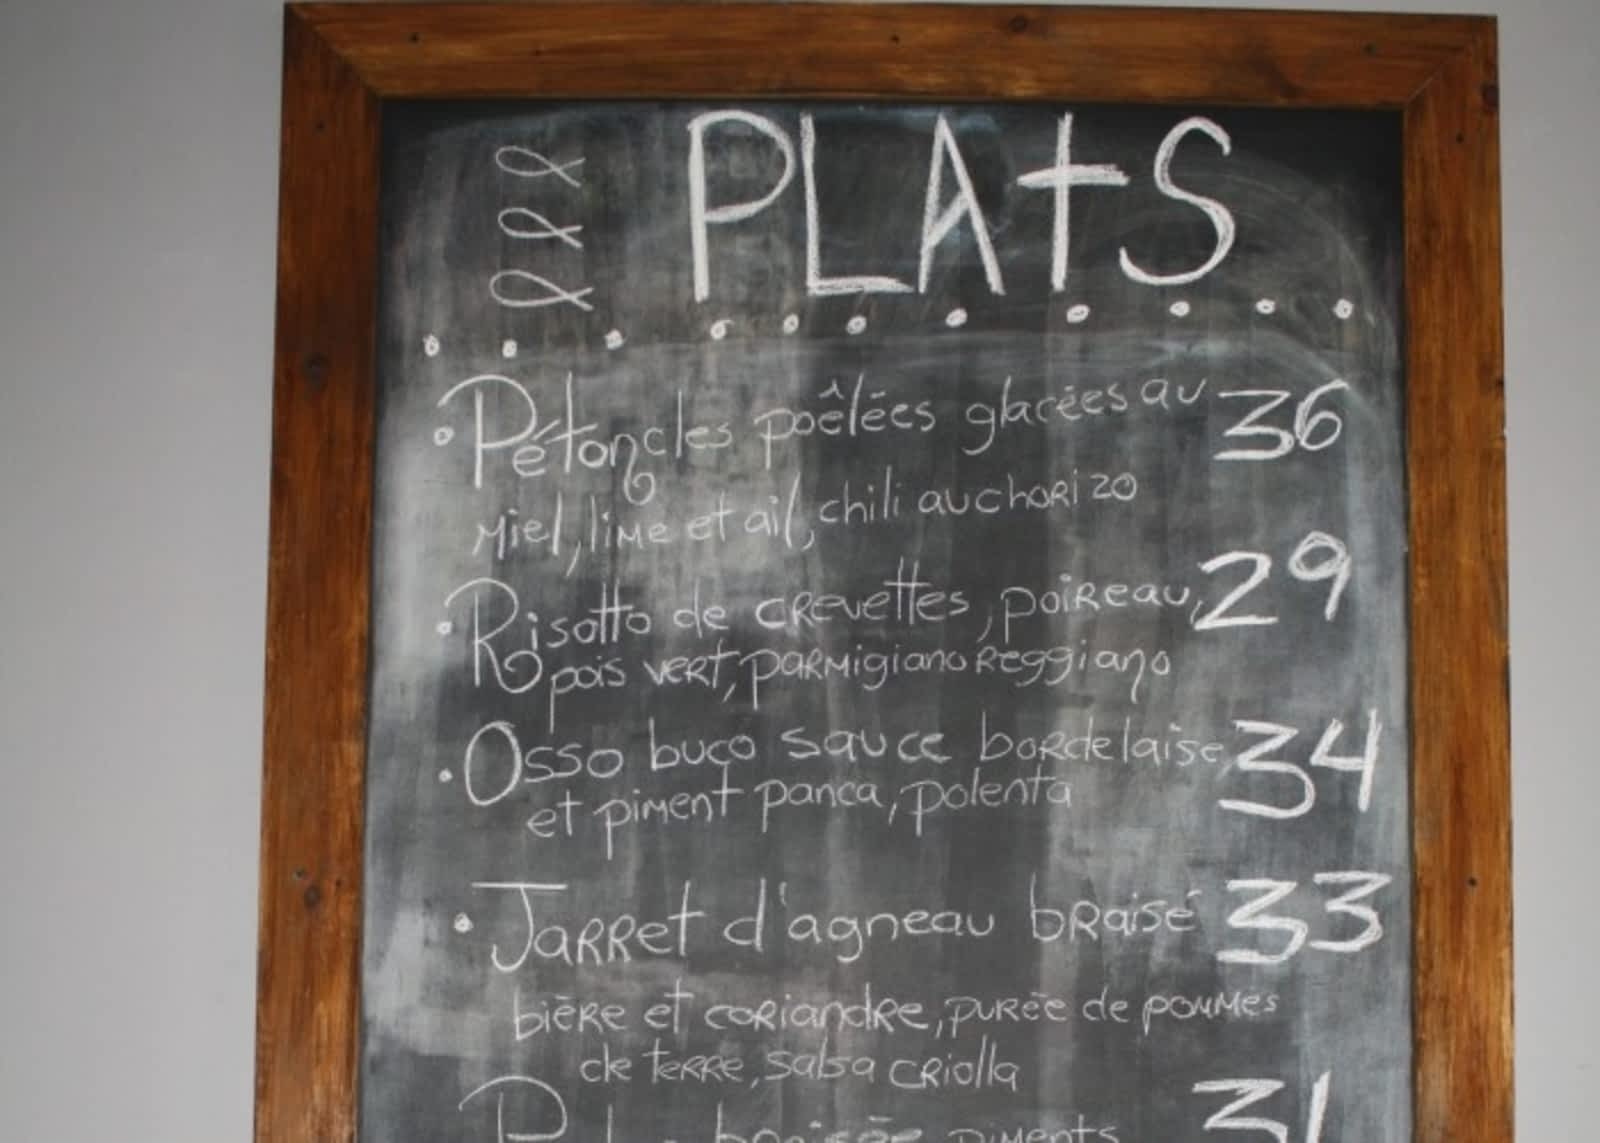 PLAtS
Pétoncles poêlées glacées au 36
miel, lime et ail, chili au chorizo
Risotto de crevettes, poireau, 29
pois vert, parmigiano reggiano
Osso buco sauce bordelaise 34
et piment panca, polenta
Jarret d'agneau braisé 33
bière et coriandre, purée de pommes
de terre, salsa criolla
braisée piments 31